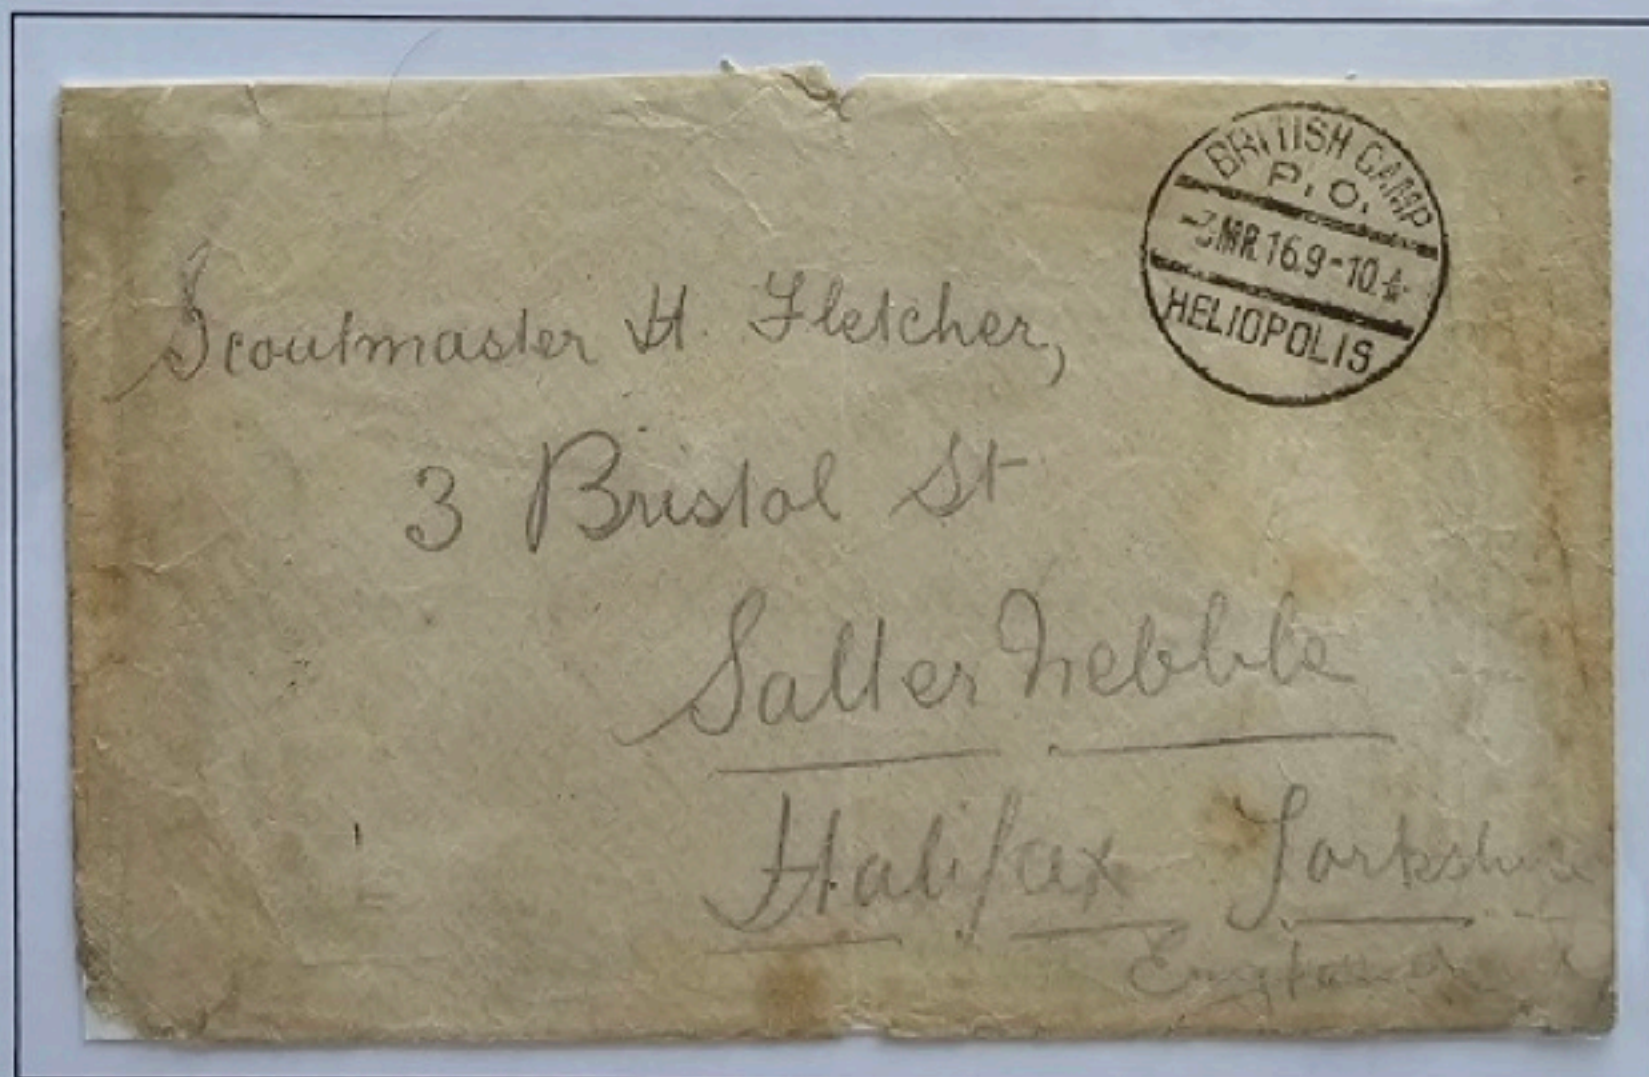 BRITISH CAMP
P.O.
MR.16.9-10.
HELIOPOLIS
Scoutmaster H. Fletcher,
3 Bristol St
Salter Nebble
Halifax Yorkshire
England